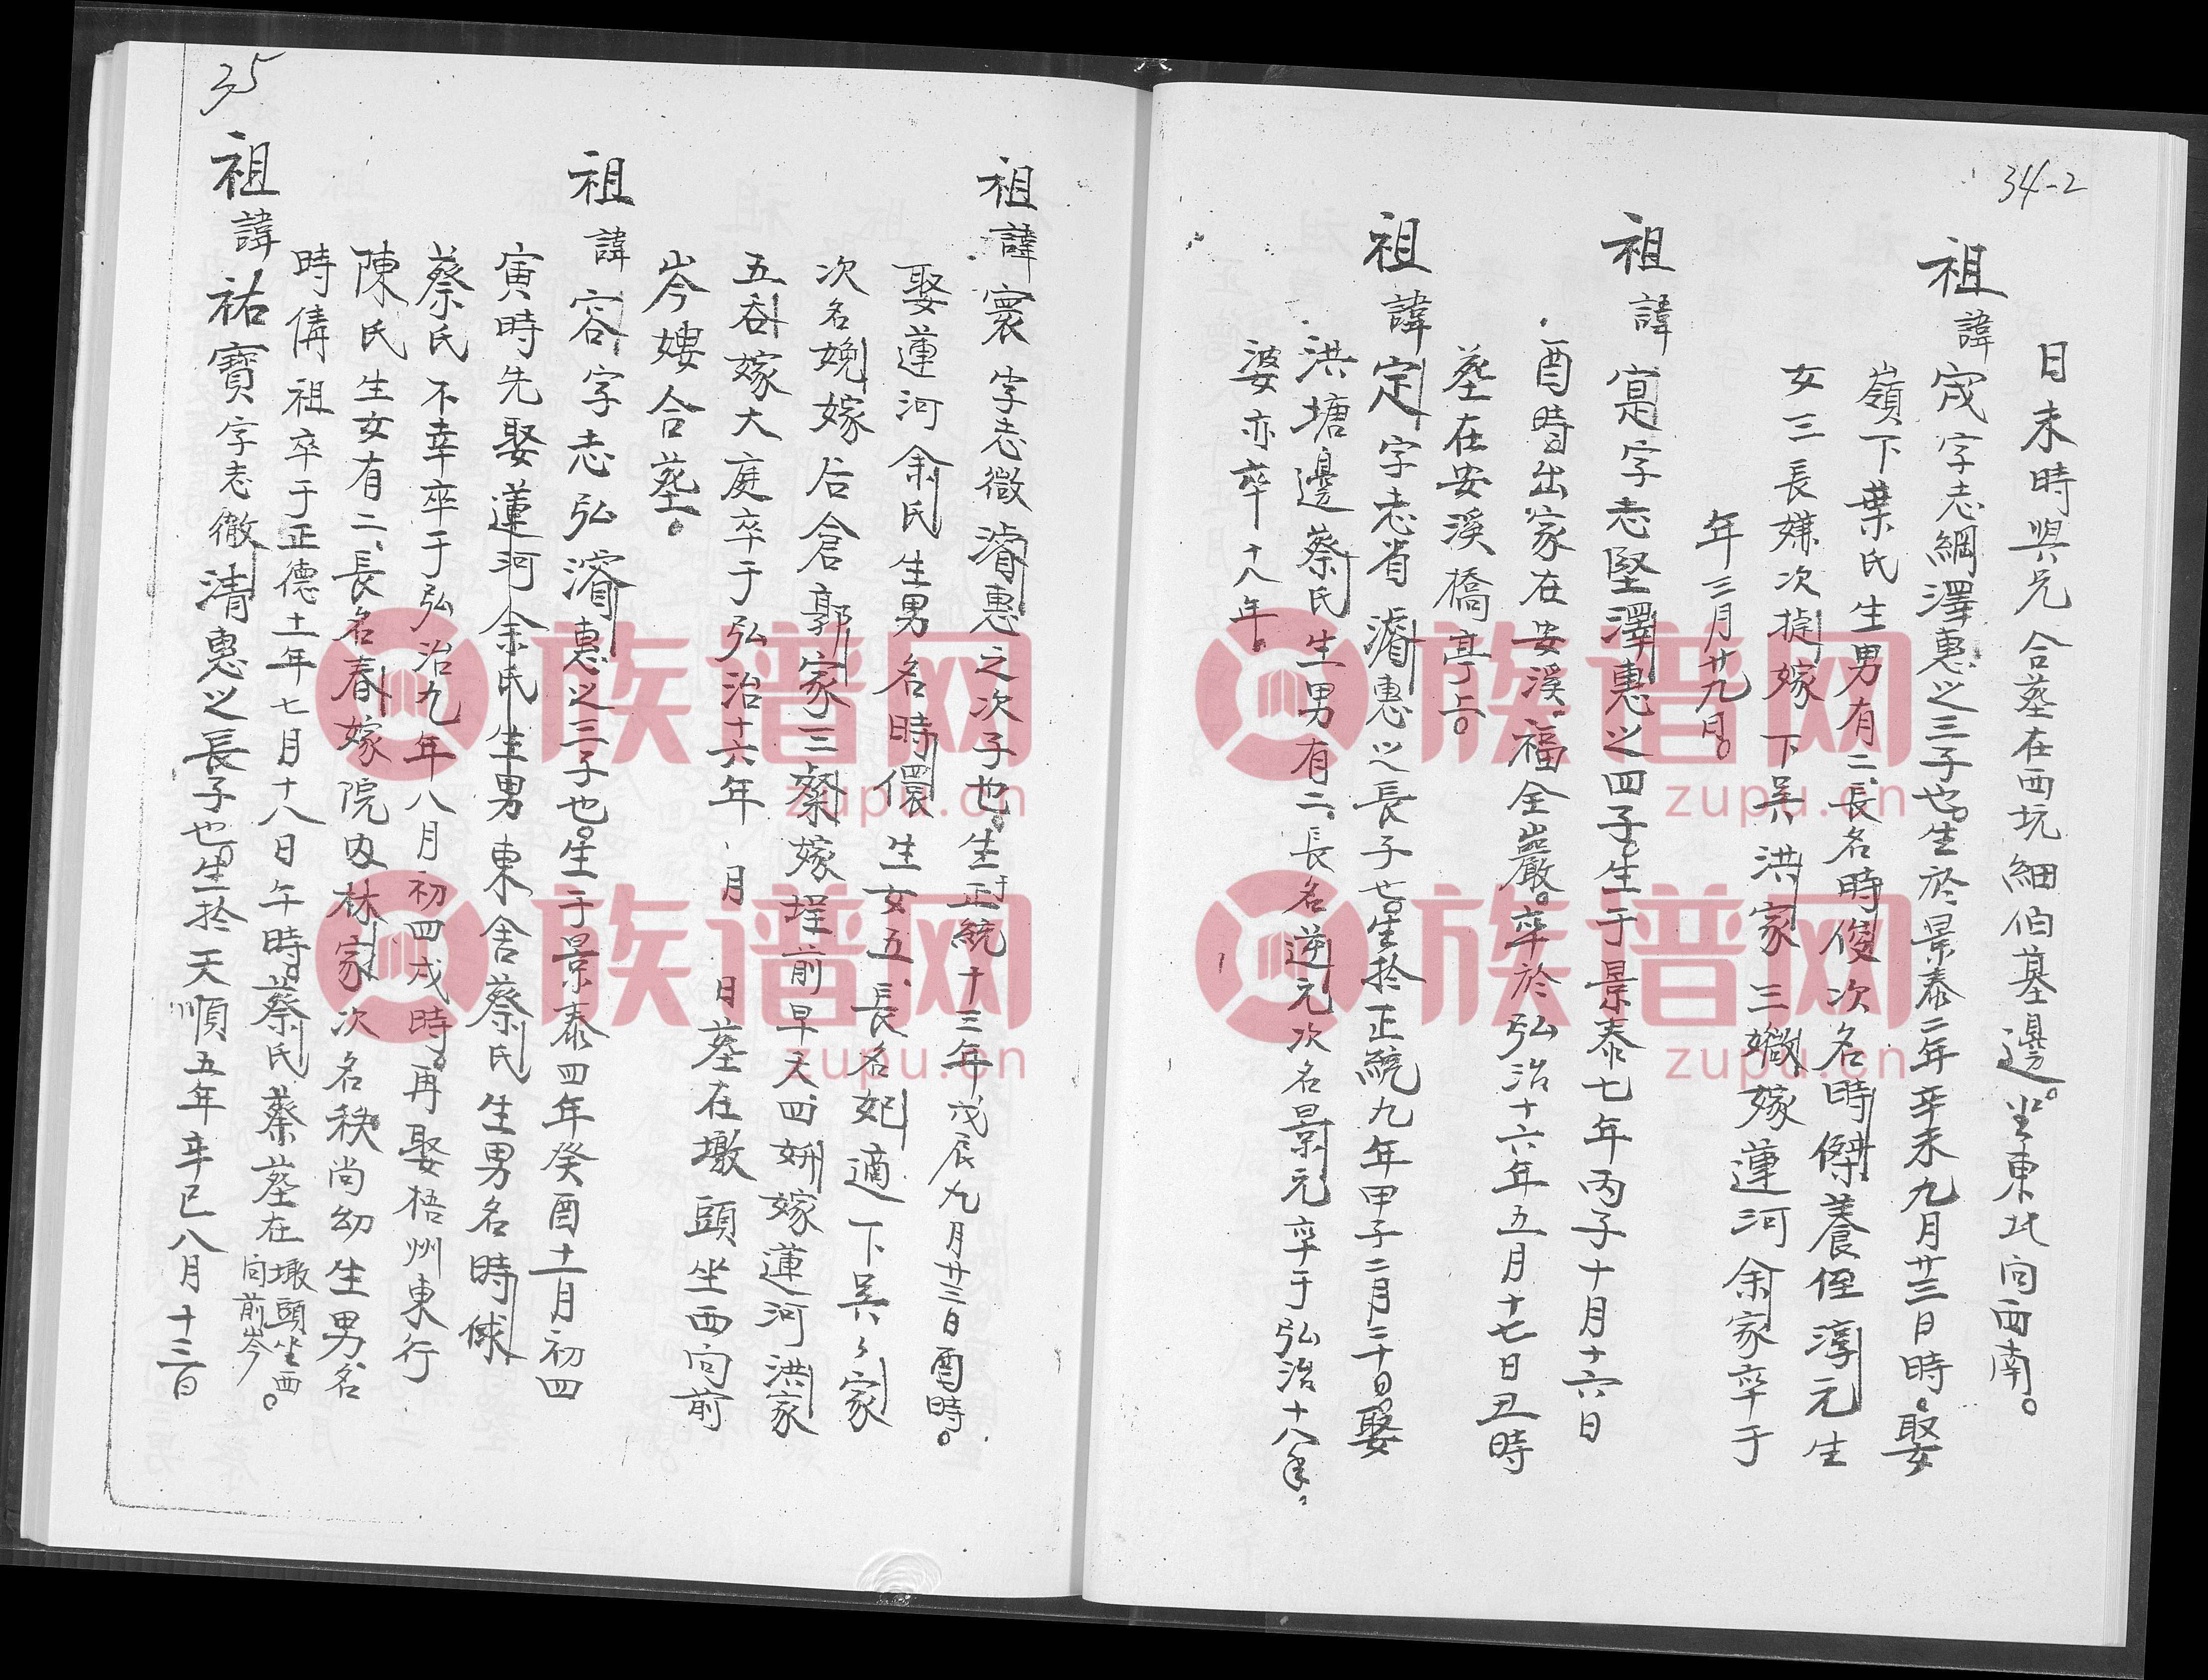 34-2
日未時與兄合塟在西坑細伯墓邊。坐東北向西南。
祖諱宬字志綱澤惠之三子也。生於景泰二年辛未九月廿三日時。娶
嶺下葉氏生男有二、長名時俊次名時傑養侄淳元生
女三長嫌次㨗嫁下吳洪家三嬓嫁蓮河余家卒于
年三月廿九日。
祖諱寔字志堅澤惠之四子。生于景泰七年丙子十月十六日
酉時出家在安溪福全巖。卒於弘治十六年五月十七日丑時
塟在安溪橋亭上。
祖諱定字志省濬惠之長子也。生於正統九年甲子二月二十日。娶
洪塘邊蔡氏生男有二、長名逆元次名景元卒于弘治十八年。
婆亦卒十八年。
35
祖諱寰字志徵濬惠之次子也。生于正統十三年戊辰九月廿三日酉時。
娶蓮河余氏生男名時儇生女五、長名妃適下吳家
次名娩嫁后倉郭家三粲嫁埕前早夭四妍嫁蓮河洪家
五嫁大庭卒于弘治十六年 月 日塟在墩頭坐西向前
岑媵合塟。
祖諱容字志弘濬惠之三子也。生于景泰四年癸酉十一月初四
寅時先娶蓮河余氏生男東舍蔡氏生男名時俅
蔡氏不幸卒于弘治九年八月初四戌時。再娶梧州東行
陳氏生女有二、長名春嫁院內林家次名秧尚幼生男名
時傋祖卒于正德十一年七月十八日午時。蔡氏蔡塟在墩頭坐西向前岑。
祖諱祐寶字志徹清惠之長子也。生於天順五年辛巳八月十三日
族譜网
zupu.cn
族譜网
zupu.cn
族譜网
zupu.cn
族譜网
zupu.cn